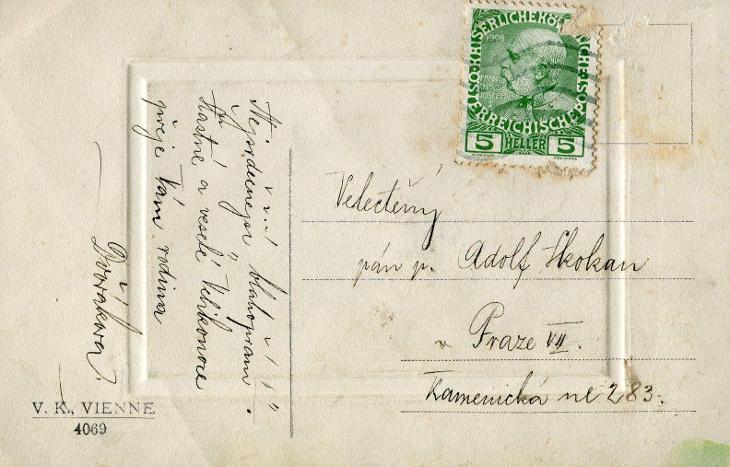 Nejsrdečnější blahopřání.
Šťastné a veselé Velikonoce
přeje Vám rodina
Dvořákova.
V. K., VIENNE
4069
KAISERLICHEKÖNIGLICHE ÖSTERREICHISCHE POST
1908
FRANZ JOSEF I
5 HELLER 5
Velectěný
pán p. Adolf Skokan
v Praze VII.
Kamenická ul 283.